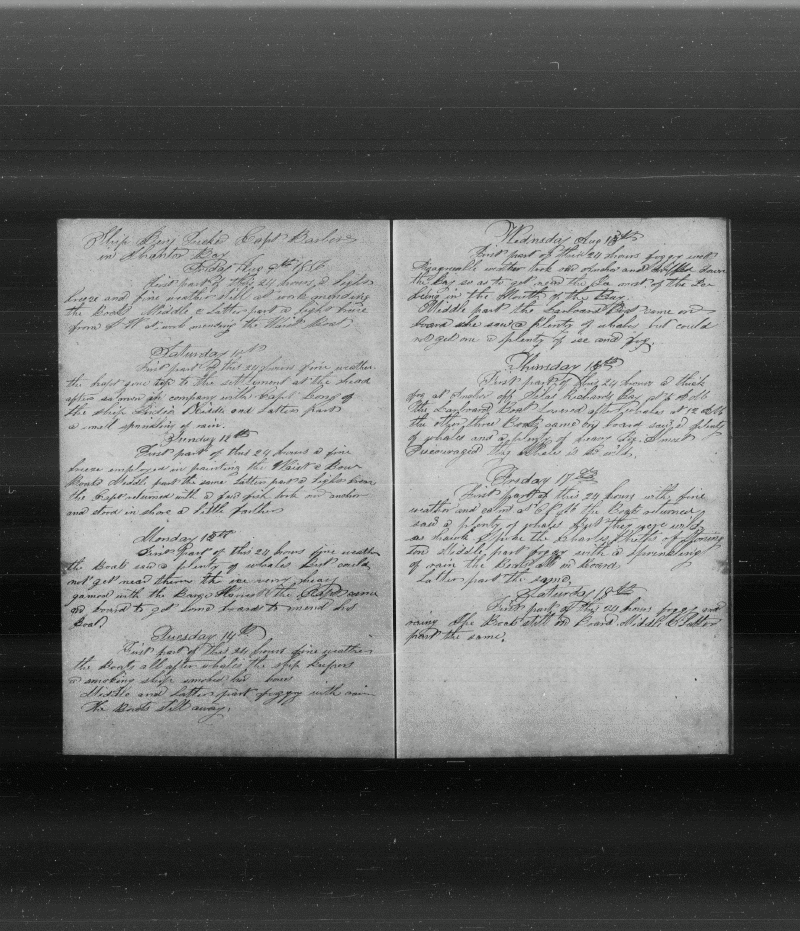 Ship Benj Tucker Capt Barber
in Shantar Bay
Friday Aug 9th
First part of this 24 hours a light
breze and fine weather still at work mending
the Boats Middle & Latter part a light breze
from at work mending the Waist Boat
Saturday 10th
First part of this 24 hours fine weather
the head to the settlement at the head
after in company with Capt Long of
the ship Middle and Latter part
a small sprinkling of rain.
Sunday 11th
First part of this 24 hours a fine
breeze employed in painting the Waist & Bow
Boats Middle part the same Latter part a light breze
the Capt returned with a few fish took our anchor
and stood in shore a little farther
Monday 13th
First Part of this 24 hours fine weather
the Boats saw a plenty of whales But could
not get near them the ice very heavy
gamed with the Barge the Capt came
on board to get some boards to mend his
Boat
Tuesday 14th
First part of this 24 hours fine weather
the Boats all after whales the ship
a smoking ship smoked
Middle and Latter part foggy with rain
the Boats still away.
Wednsday Aug 15th
First part of this 24 hours foggy wet
weather took our anchor and down
the Bay so as to get near the
in the Mouth of the Bay.
Middle part the Larboard Boat came on
board she saw a plenty of whales but could
not get one a plenty of ice and fog.
Thursday 16th
First part of this 24 hours a thick
fog at Anchor off
the Larboard Boat lowered after whales at 12
the other three Boats came on board saw a plenty
of whales and a plenty of heavy Ice Almost
Discouraged the whale is so wild,
17th
First part of this 24 hours with fine
weather and calm at the Boats returned
saw a plenty of whale But they were wild
as hawks Spoke the Charles Phelps of Stoning
ton Middle part foggy with a sprinkling
of rain the Boats all on board
Latter part the same,
Saturday 18th
First part of this 24 hours foggy and
rainy the Boats still on Board Middle & Latter
part the same,